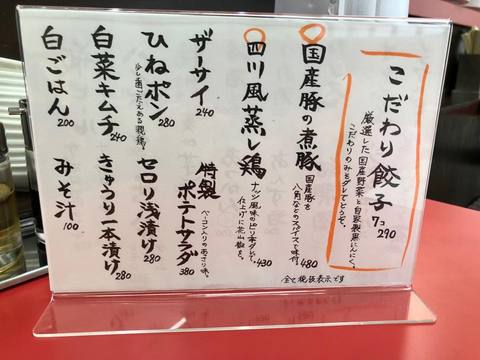 こだわり餃子 7コ 290
厳選した国産野菜と自家製黒にんにく。
こだわりのみそダレでどうぞ。
国産豚の煮豚
国産豚を
八角などのスパイスで味付。 480
四川風蒸し鶏
ナッツ風味のピリ辛ダレ。
仕上げに花山椒を。 430
ザーサイ 240
特製
ポテトサラダ 380
ベーコン入りのあさり味。
ひねポン 280
少し歯ごたえある親鶏。
セロリ浅漬け 280
白菜キムチ 240
きゅうり一本漬け 280
白ごはん 200
みそ汁 100
全て税抜表示です